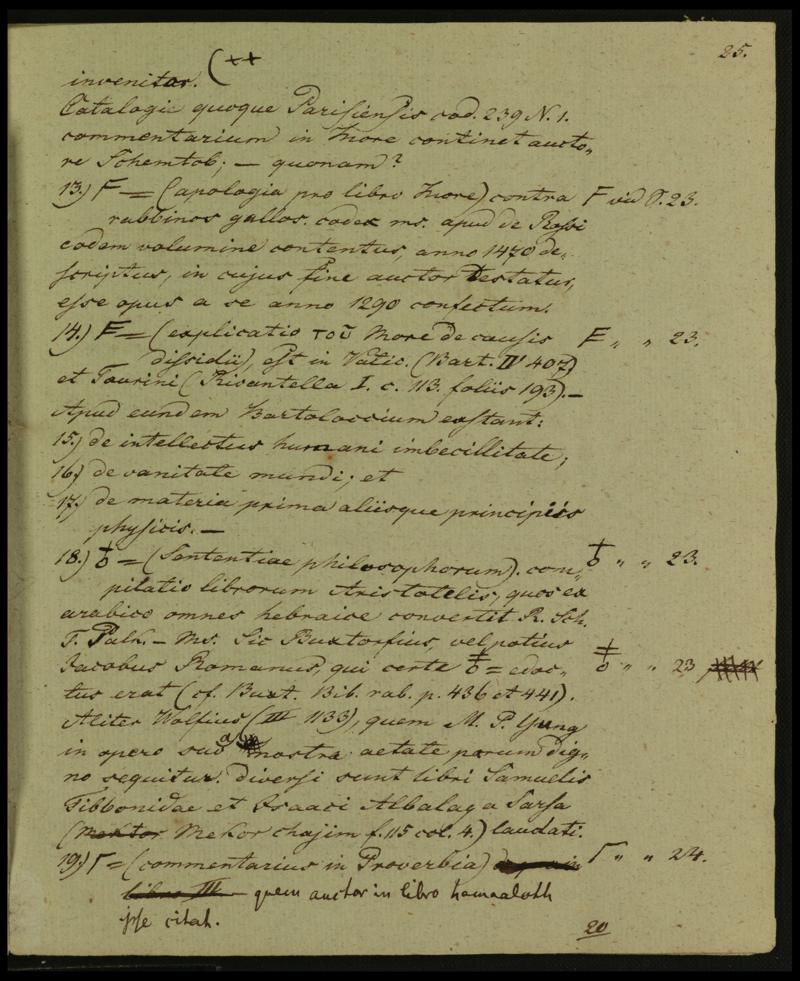 25.
invenitur. (++
Catalogi quoque Parisiensis cod. 239 N. 1.
commentarium in More continet aucto-
re Schemtob; — quonam?
13.) F = (apologia pro libro More) contra F vid P. 23.
rabbinos gallos. codex ms. apud de Rossi
eodem volumine contentus, anno 1470 de-
scriptus, in cujus fine auctor testatus,
esse opus a se anno 1290 confectum.
14.) F = (explicatio τοῦ More de causis F „ „ 23.
dissidii), est in Vatic. (Bart. IV 407)
et Taurini (Rivantella I. c. 113. foliis 193).—
Apud eundem Bartoloccium exstant:
15.) de intellectus humani imbecillitate;
16.) de vanitate mundi; et
17.) de materia prima aliisque principiis
physicis. —
18.) ♁ = (Sententiae philosophorum). com- ♁ „ „ 23.
pilatio librorum Aristotelis, quos ex
arabico omnes hebraice convertit R. Sch.
T. Palk. — Ms. Sic Buxtorfius, vel potius
Jacobus Romanus, qui certe = edoc- „ „ 23
tus erat (cf. Buxt. Bib. rab. p. 436 et 441).
Aliter Wolfius (III 1133), quem M. P. Jung
in opere suo a nostra aetate parum dig-
no sequitur. diversi sunt libri Samuelis
Tibbonidae et Isaaci Albalag a Sarsa
(Mektor Mekor chajim f. 115 col. 4.) laudati.
19.) Γ = (commentarius in Proverbia) Γ „ „ 24.
libro III quem auctor in libro hamaaloth
ipse citat.
20